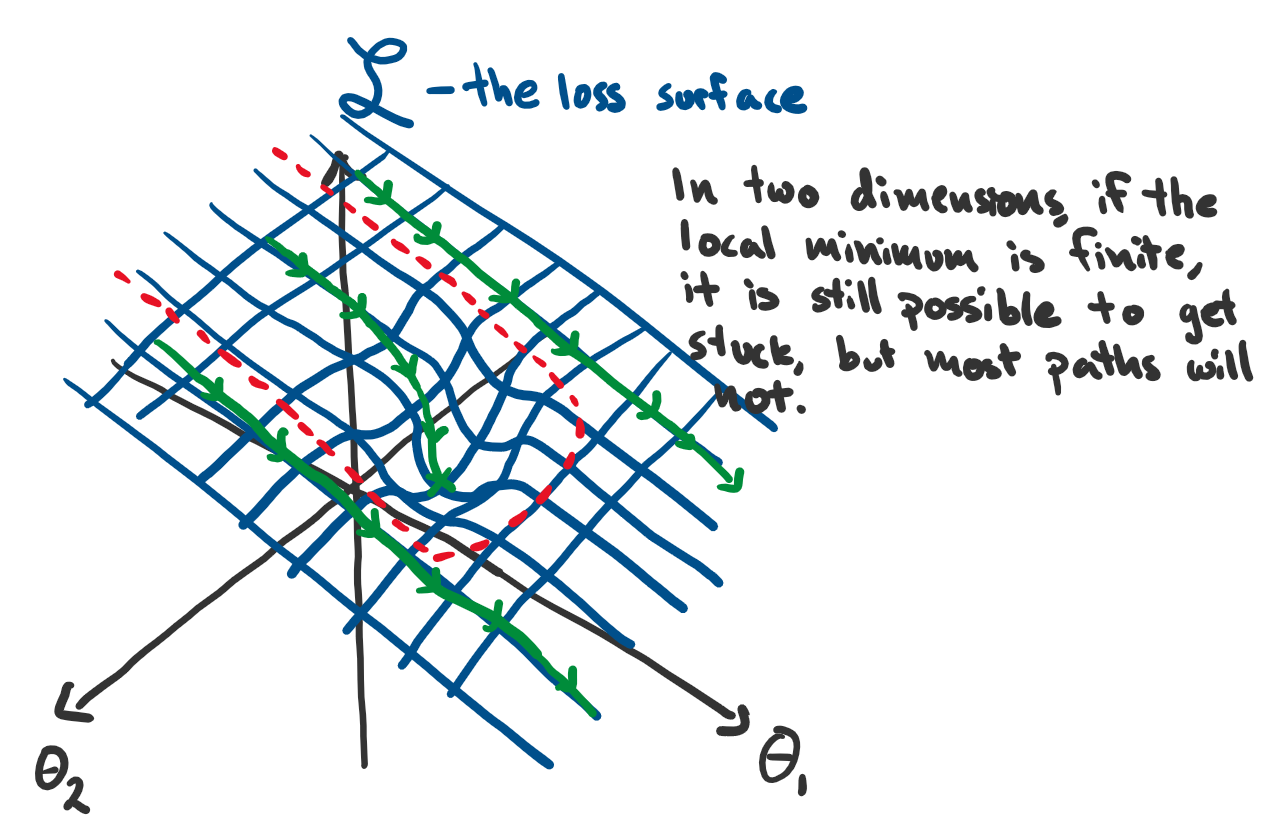 ℒ - the loss surface
In two dimensions, if the
local minimum is finite,
it is still possible to get
stuck, but most paths will
not.
θ₂
θ₁